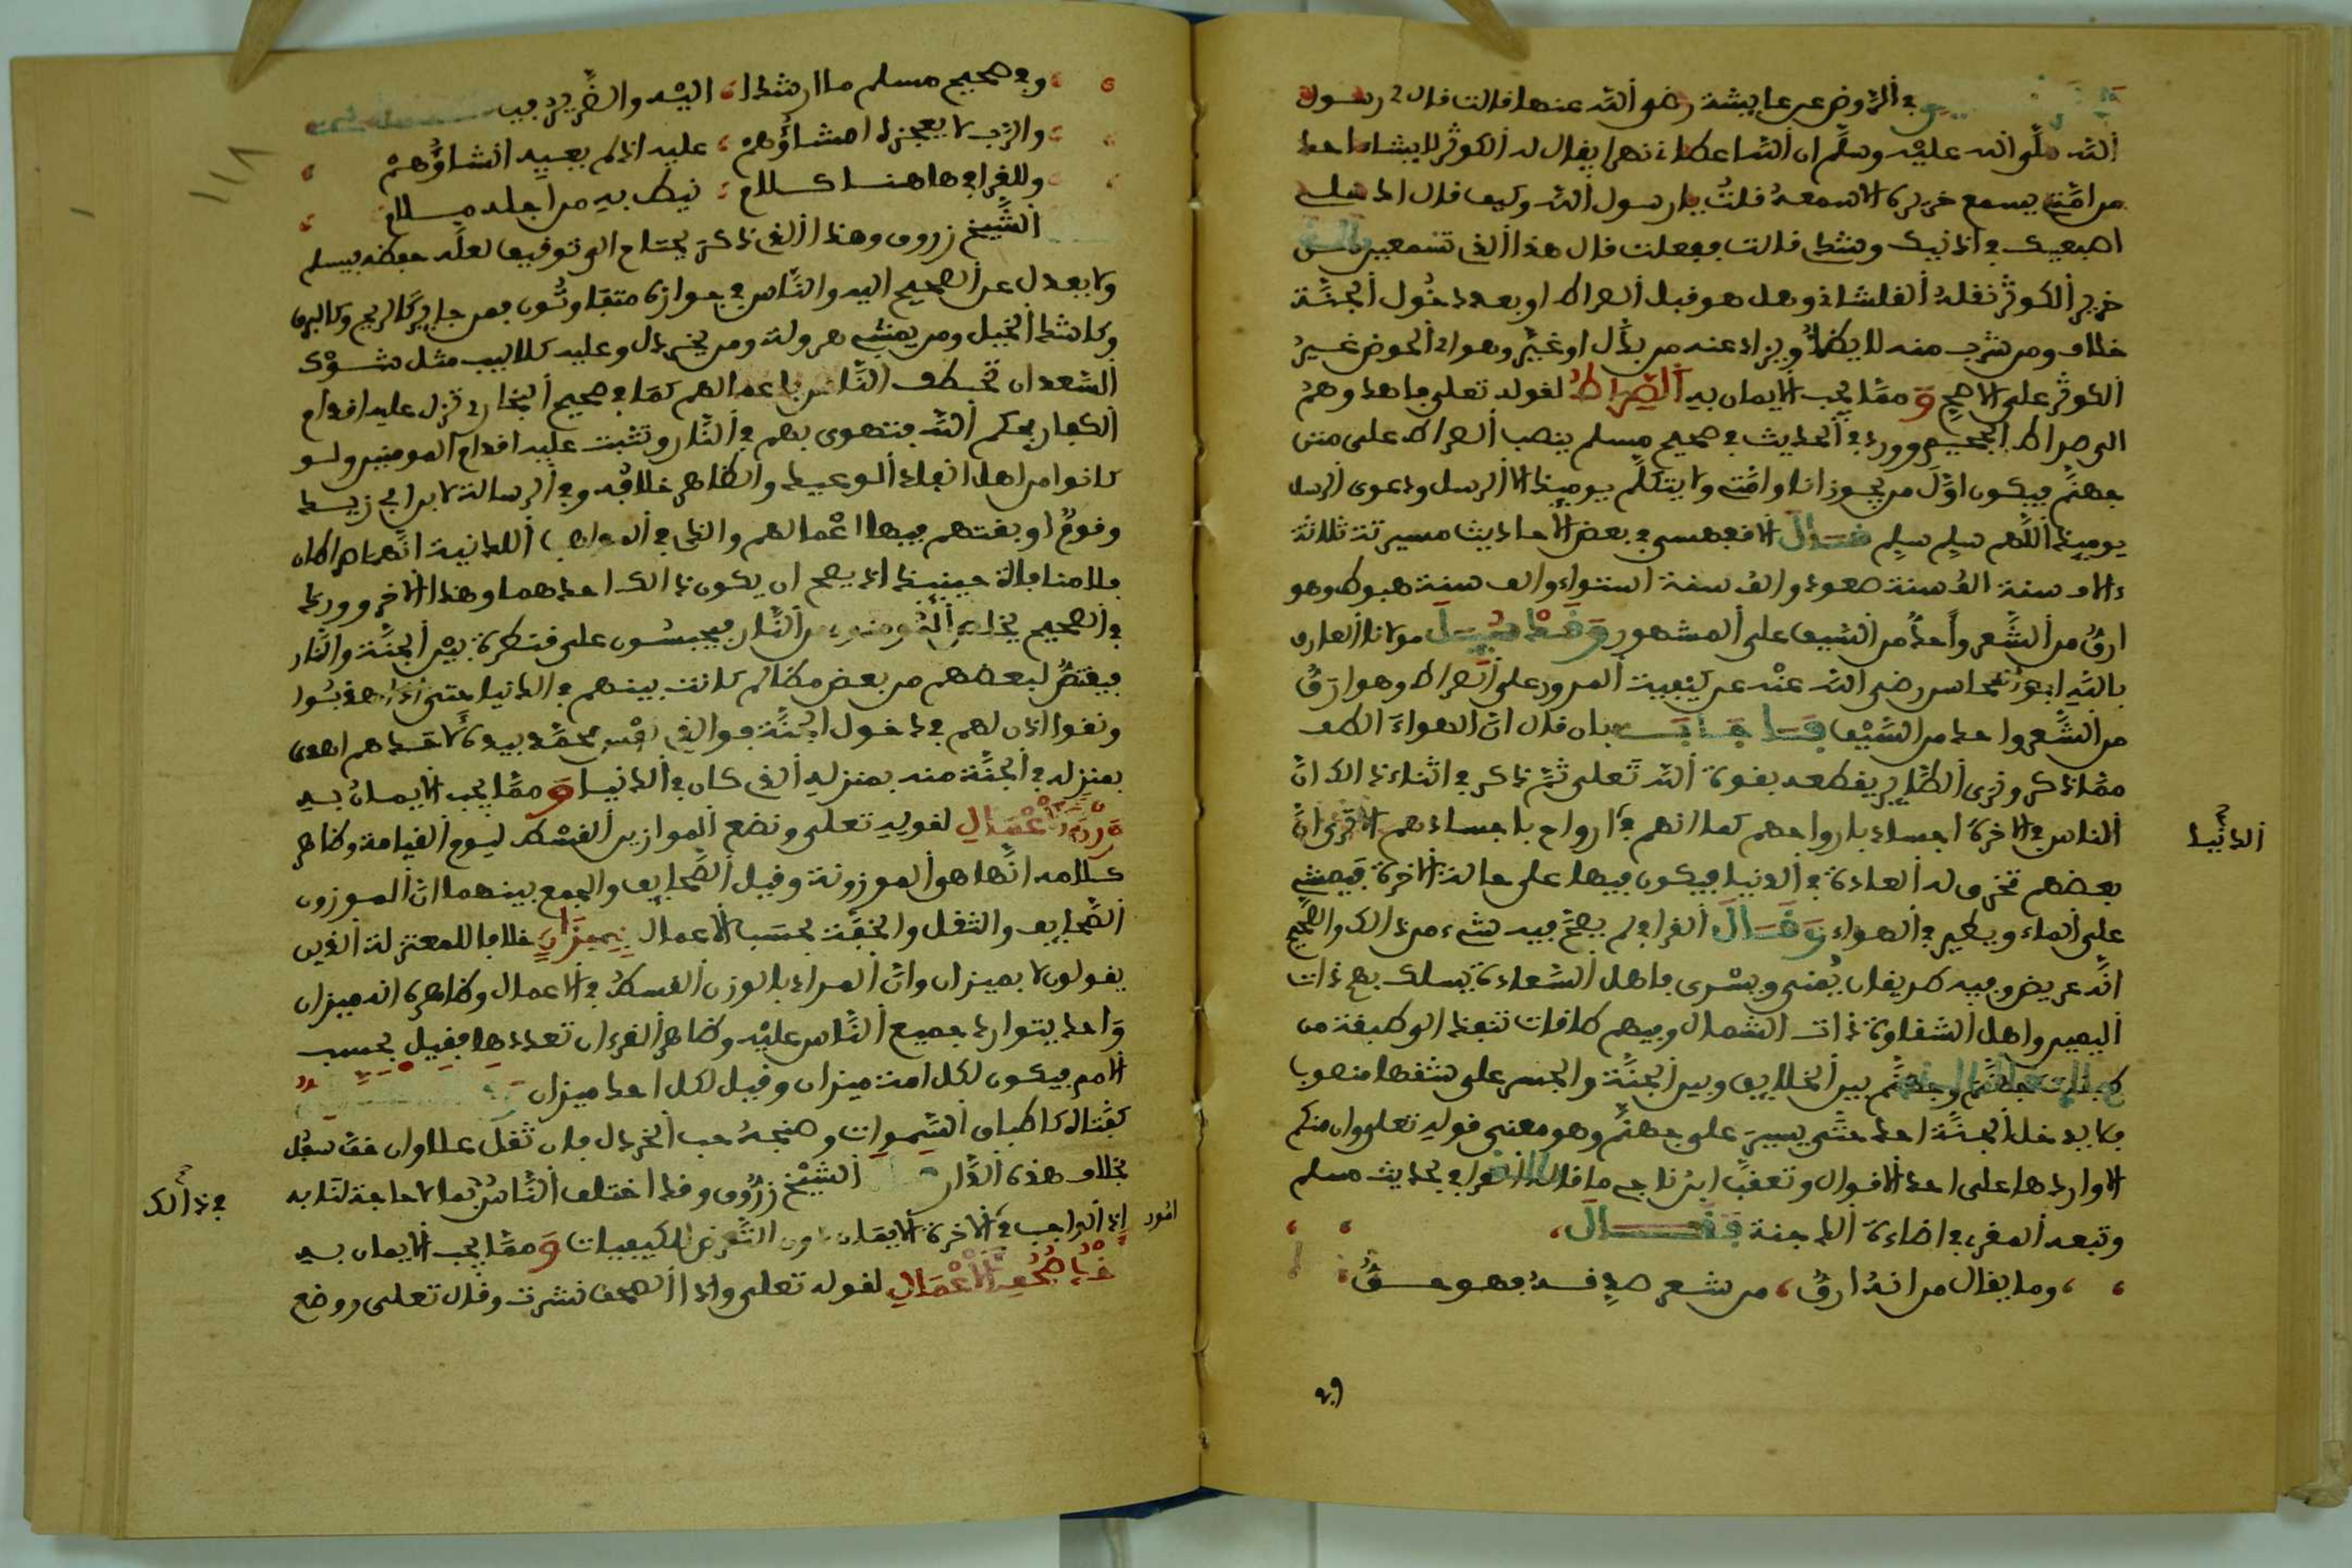 في الروض عن عايشة رضي الله عنها قالت قال لي رسول
الله صلى الله عليه وسلم ان الله اعطاني نهرا يقال له الكوثر لا يشاء احد
من امتي يسمع خريره الا سمعه فلت يا رسول الله وكيف قال ادخلي
اصبعيك في اذنيك وشدي قالت ففعلت قال هذا الذي تسمعين من
خرير الكوثر نقله القلشاني وهل هو قبل الصراط او بعد دخول الجنة
خلاف ومن شرب منه لا يظمأ ويزاد عنه من بدل او غير وهو اي الحوض غير
الكوثر على الاصح ومما يجب الايمان به الصراط لقوله تعلى فاهدوهم
الى صراط الجحيم وورد في الحديث في صحيح مسلم ينصب الصراط على متن
جهنم فيكون اول من يجوز انا وامتي ولا يتكلم يوميذ الا الرسل ودعوى الرسل
يوميذ اللهم سلم سلم قال الاقفهسي في بعض الاحاديث مسيرته ثلاثة
ءالاف سنة الف سنة صعود والف سنة استواء والف سنة هبوط وهو
ارق من الشعر واحد من السيف على المشهور وقد سيل مولانا العارف
بالله ابو المحاسن رضي الله عنه عن كيفية المرور على الصراط وهو ارق
من الشعر واحد من السيف فاجاب بان قال ان الهواء الطف
مما ذكر ونرى الطاير يقطعه بقوة الله تعلى ثم ذكر في اثناء ذالك ان
الناس في الاخرة اجساد بارواحهم كما انهم في ارواح باجسادهم الا ترى ان
الدنيا
بعضهم تخرق له العادة في الدنيا فيكون فيها على حالة الاخرة فيمشي
على الماء ويطير في الهواء وقال القرافي لم يصح فيه شيء من ذالك والصحيح
انه عريض وفيه طريقان يمنى ويسرى فاهل السعادة يسلك بهم ذات
اليمين واهل الشقاوة ذات الشمال وفيهم طاقات تنفذ الى كل طبقة من
طبقات جهنم وجهنم بين الخلايق وبين الجنة والجسر على متنها منصوب
فلا يدخل الجنة احد حتى يسير على جهنم وهو معنى قوله تعلى وان منكم
الا واردها على احد الاقوال وتعقب ابن ناجي ما قاله القرافي بحديث مسلم
وتبعه المقري في اضاءة الدجنة فقال
وما يقال من انه ارق، من شعر صدقه فهو حق
وفي صحيح مسلم ما ارشدا، اليه والضرير فيه
والرب لا يعجزه امشاؤهم، عليه اذ لم يعيه انشاؤهم
وللقرافي هاهنا كلام، نيط به من اجله ملام
الشيخ زروق وهذا الذي ذكر يحتاج الى توقيف لعله حفظه فيسلم
ولا يعدل عن الصحيح اليه والناس في جوازه متفاوتون فمن جاير كالريح وكالبرق
وكاشد الخيل ومن يمشي هرولة ومن يخردل وعليه كلاليب مثل شوك
السعدان تخطف الناس باعمالهم كما في صحيح البخاري تزل عليه اقدام
الكفار بحكم الله فتهوي بهم في النار وتثبت عليه اقدام المومنين ولو
كانوا من اهل انفاذ الوعيد والظاهر خلافه وفي الرسالة لابن ابي زيد
وقوم اوبقتهم فيها اعمالهم والذي في المواهب اللدنية انهما صراطان
فلا منافاة حينيذ اذ يصح ان يكون ذالك احدهما وهذا الاخر وورد
في الصحيح يخلص المومنون من النار فيحبسون على قنطرة بين الجنة والنار
فيقتص لبعضهم من بعض مظالم كانت بينهم في الدنيا حتى اذا هذبوا
ونقوا اذن لهم في دخول الجنة فوالذي نفس محمد بيده لاحدهم اهدى
بمنزله في الجنة منه بمنزله الذي كان في الدنيا ومما يجب الايمان به
وزن الاعمال لقوله تعلى ونضع الموازين القسط ليوم القيامة وظاهر
كلامه انها هو الموزونة وقيل الصحايف والجمع بينهما ان الموزون
الصحايف والثقل والخفة بحسب الاعمال بميزان خلافا للمعتزلة الذين
يقولون لا بميزان وان المراد بالوزن القسط في الاعمال وظاهره انه ميزان
واحد يتوارد جميع الناس عليه وظاهر القرءان تعددها فقيل بحسب
الامم فيكون لكل امة ميزان وقيل لكل احد ميزان
كفتاه كاطباق السموات وصنجه حب الخردل فان ثقل علا وان خف سفل
بخلاف هذه الدار الشيخ زروق وقد اختلف الناس بما لا حاجة لنا به
في ذالك
اذ الواجب في امور الاخرة الايمان دون التعرض للكيفيات ومما يجب الايمان به
اخذ صحف الاعمال لقوله تعلى واذا الصحف نشرت وقال تعلى ووضع
١١٨